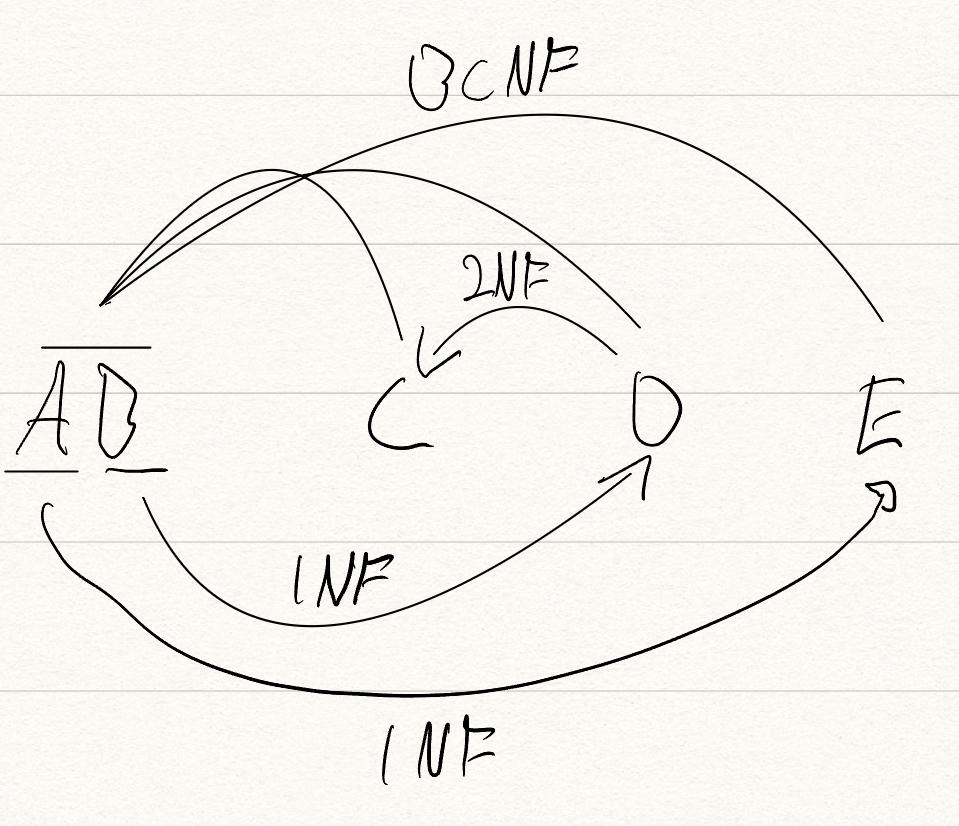 BCNF
2NF
AB C D E
1NF
1NF